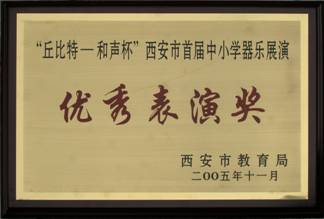 “丘比特—和声杯”西安市首届中小学器乐展演
优秀表演奖
西安市教育局
二OO五年十一月